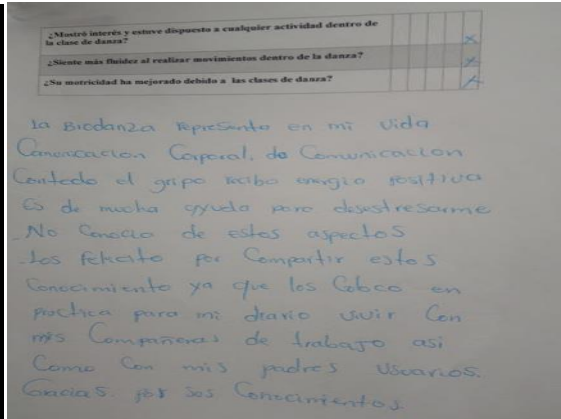 ¿Mostró interés y estuvo dispuesto a cualquier actividad dentro de
la clase de danza?
¿Siente más fluidez al realizar movimientos dentro de la danza?
¿Su motricidad ha mejorado debido a las clases de danza?
la Biodanza representa en mi vida
Corporal. de Comunicacion
el gripo recibo energia positiva
Es de mucha ayuda para desestresarme
No Conocia de estos aspectos
los felicito por Compartir estos
Conocimiento ya que los Coloco en
practica para mi diario vivir Con
mis Compañeras de trabajo asi
Como Con mis padres Usuarios.
Gracias por sus Conocimientos